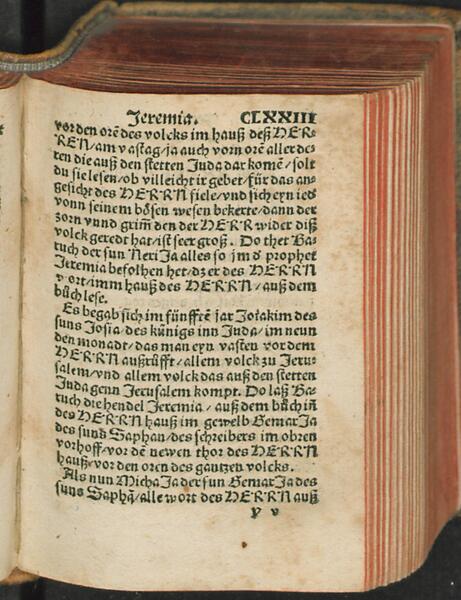 Jeremia. CLXXIII
vor den orẽ des volcks im hauß deß HER⸗
REN/am vastag/ja auch vorn orẽ aller de⸗
ren die auß den stetten Juda dar komẽ/solt
du sie lesen/ob villeicht ir gebet/für das an⸗
gesicht des HERRN fiele/vnd sich eyn ied
vonn seinem bösen wesen bekerte/dann der
zorn vnnd grim̃ den der HERR wider diß
volck geredt hat/ist seer groß. Do thet Ba⸗
ruch der sun NeriJa alles so jm ď prophet
Jeremia befolhen het/dz er des HERRN
wort/imm hauß des HERRN/auß dem
bůch lese.
Es begab sich im fünfftẽ jar Joiakim des
suns Josia/des künigs inn Juda/im neun
den monadt/das man eyn vasten vor dem
HERRN außrüfft/allem volck zu Jeru⸗
salem/vnd allem volck das auß den stetten
Juda genn Jerusalem kompt. Do laß Ba⸗
ruch die hendel Jeremia/auß dem bůch iñ
des HERRN hauß im gewelb GemarJa
des suns Saphan/des schreibers im obren
vorhoff/vor dẽ newen thor des HERRN
hauß/vor den oren des gantzen volcks.
Als nun MichaJa der sun GemarJa des
suns Saphã/alle wort des HERRN auß
y v